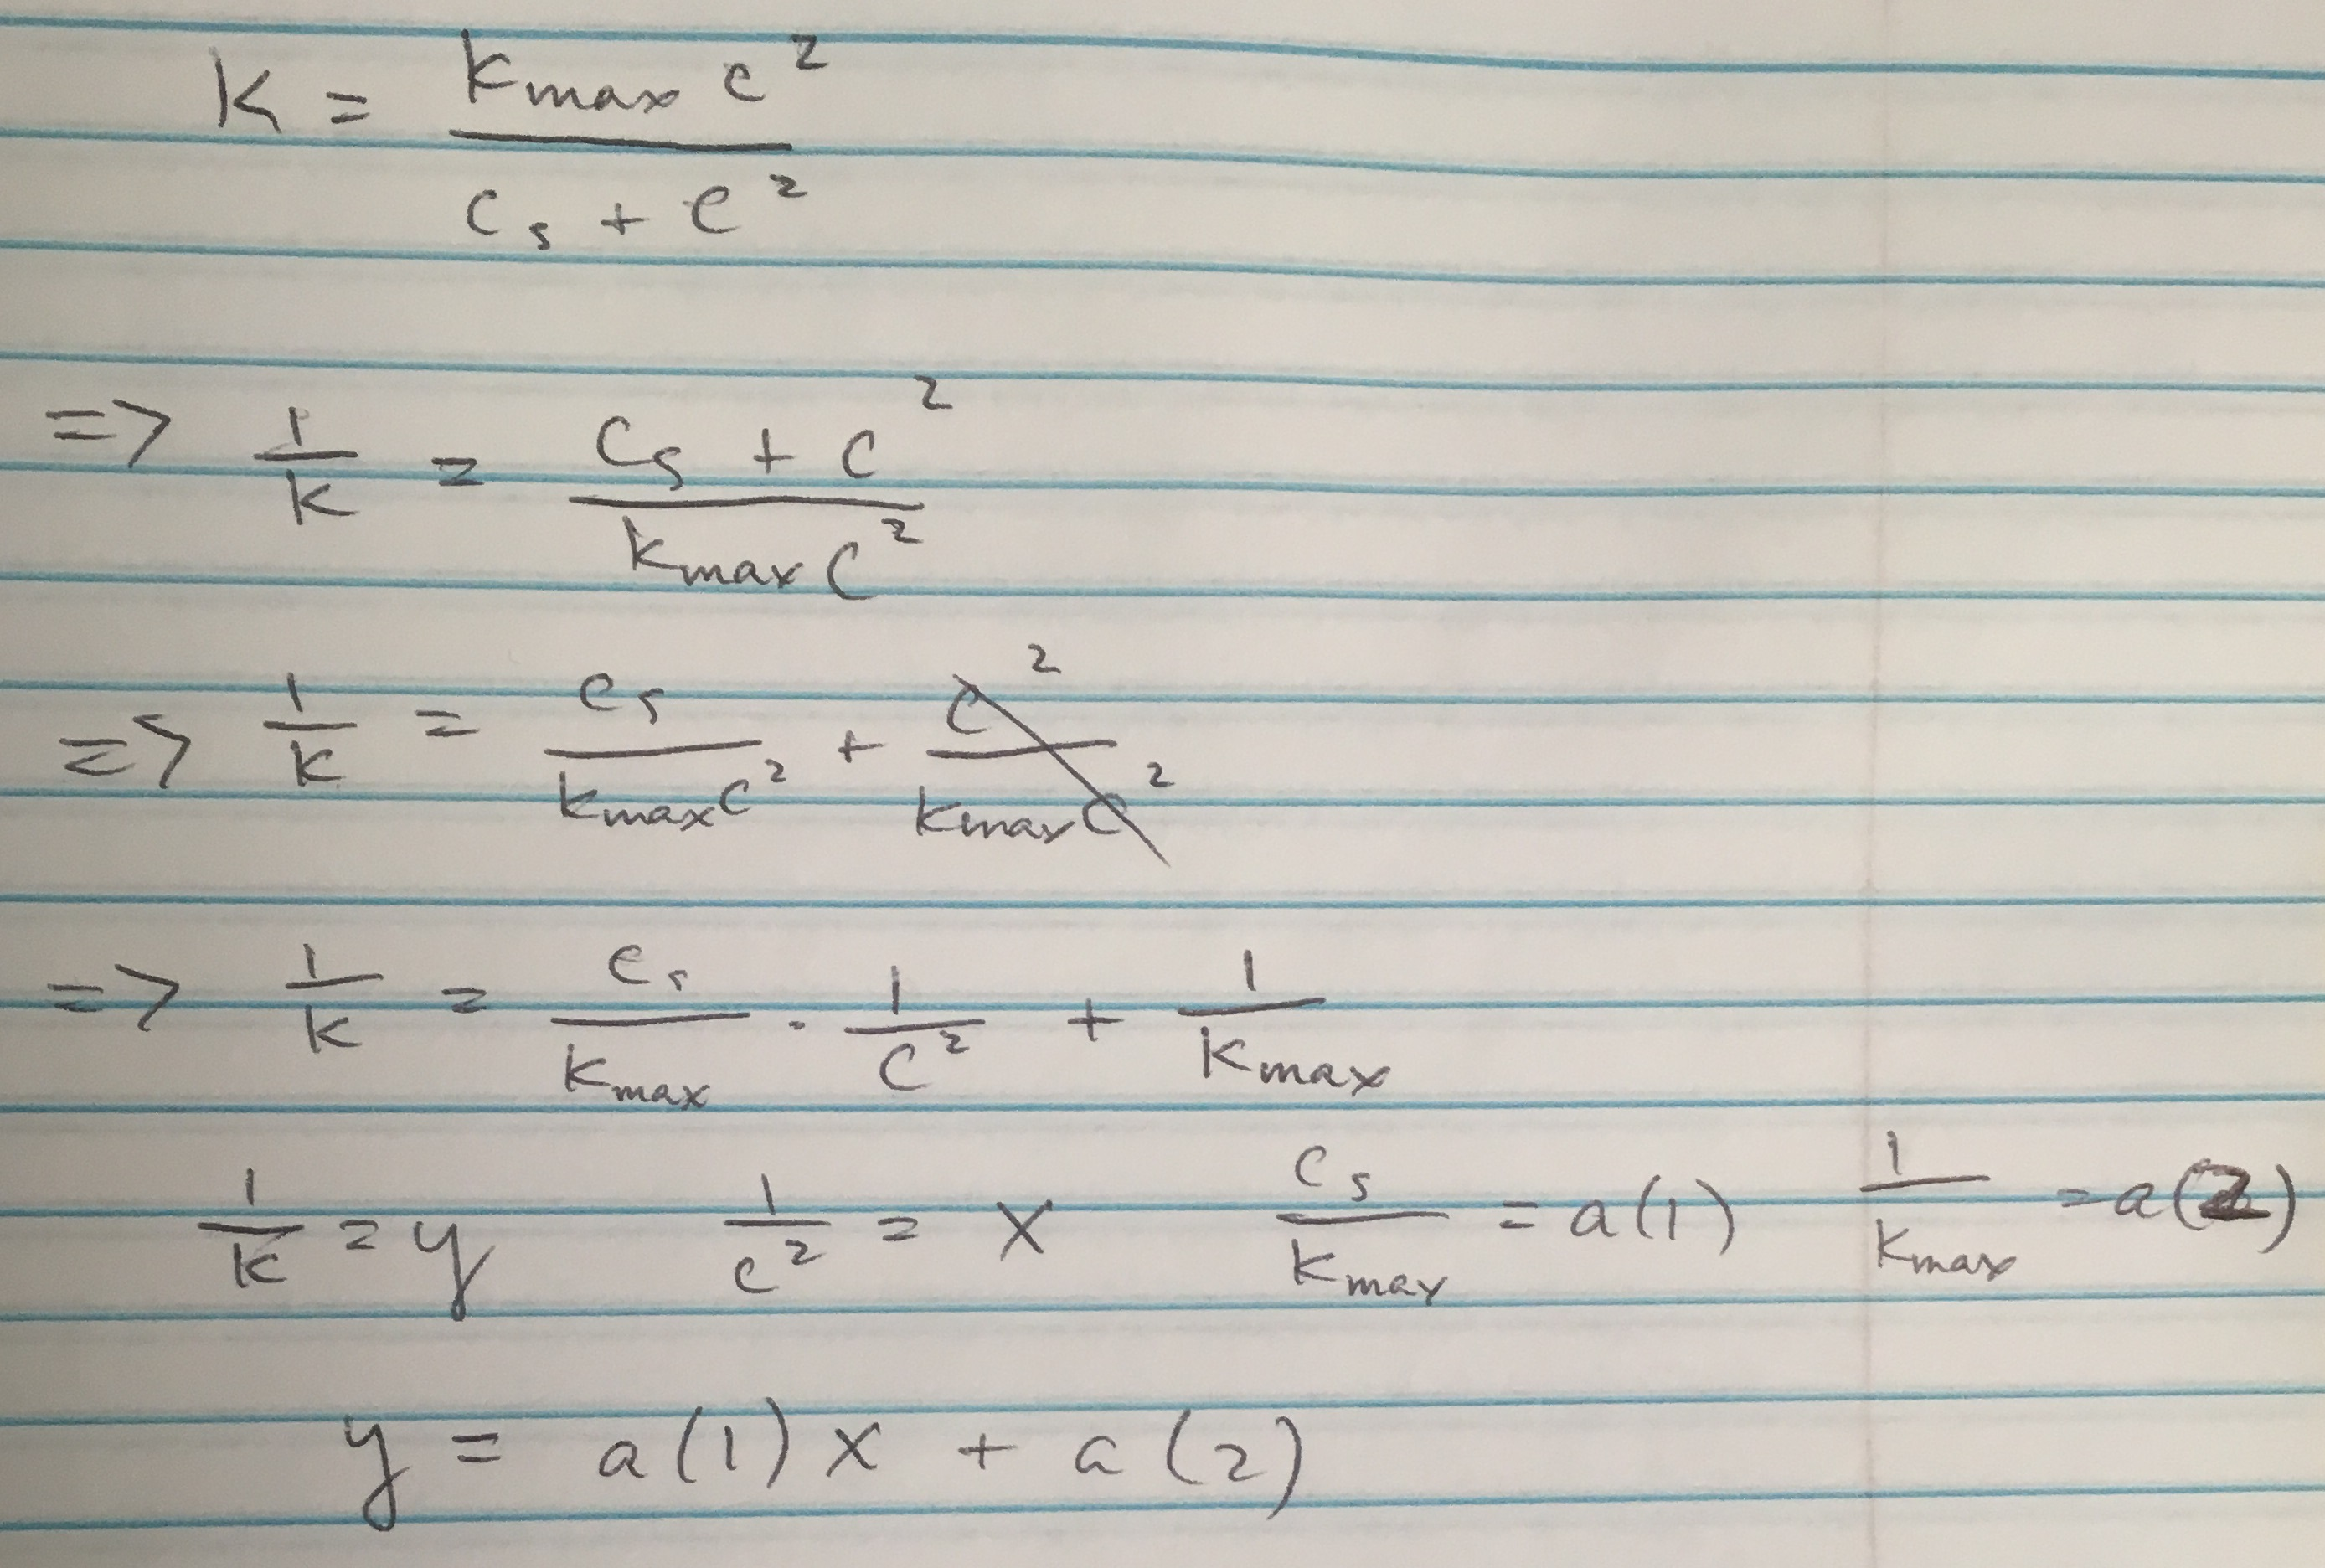 k = kmax c² / (cs + c²)
=> 1/k = (cs + c²) / (kmax c²)
=> 1/k = cs / (kmax c²) + c² / (kmax c²)
=> 1/k = cs / kmax · 1/c² + 1/kmax
1/k = y   1/c² = x   cs/kmax = a(1)   1/kmax = a(2)
y = a(1)x + a(2)